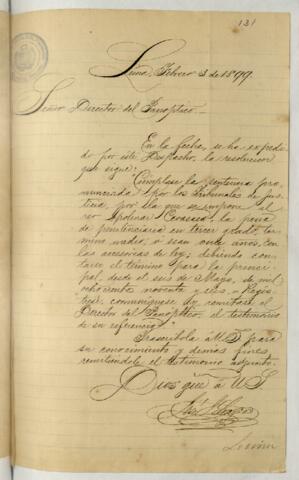 131
Lima, Febrero 3 de 1899
Señor Director del Panóptico.
En la fecha, se ha expedi-
do por este Despacho, la resolucion
que sigue:
"Cúmplase la sentencia pro-
nunciada por los Tribunales de Jus-
ticia, por la que se impone al
reo Apolinar la pena
de penitenciaría en tercer grado, tér-
mino medio, o sean once años, con
las accesorias de ley; debiendo con-
tarse el término para la princi-
pal desde el seis de Mayo, de mil
ochocientos noventa y seis. - Regís-
trese, comuníquese y remítase al
Director del Panóptico, el testimonio
de su referencia."
Trascríbola á US. para
su conocimiento y demás fines
remitiéndole el testimonio adjunto.
Dios gue. á US.